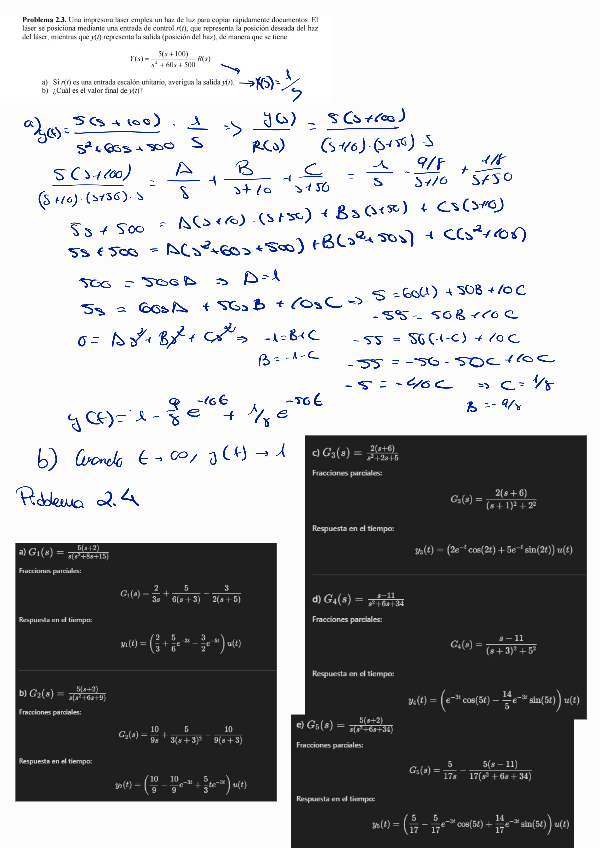 Problema 2.3. Una impresora láser emplea un haz de luz para copiar rápidamente documentos. El
láser se posiciona mediante una entrada de control r(t), que representa la posición deseada del haz
del láser, mientras que y(t) representa la salida (posición del haz), de manera que se tiene
Y(s) = 5(s+100)/(s² + 60s + 500) R(s)
a) Si r(t) es una entrada escalón unitario, averigua la salida y(t). → R(s) = 1/s
b) ¿Cuál es el valor final de y(t)?
a) y(s) = 5(s+100)/(s²+60s+500) · 1/s => y(s)/R(s) = 5(s+100)/((s+10)·(s+50)·s)
5(s+100)/((s+10)·(s+50)·s) = A/s + B/(s+10) + C/(s+50) = 1/s - (9/8)/(s+10) + (1/8)/(s+50)
5s + 500 = A(s+10)·(s+50) + Bs(s+50) + Cs(s+10)
5s + 500 = A(s²+60s+500) + B(s²+50s) + C(s²+10s)
500 = 500A => A=1
5s = 60sA + 50sB + 10sC => 5 = 60(1) + 50B + 10C
-55 = 50B + 10C
0 = As² + Bs² + Cs² => -1 = B+C
B = -1-C
-55 = 50(-1-C) + 10C
-55 = -50 - 50C + 10C
-5 = -40C => C = 1/8
B = -9/8
y(t) = 1 - 9/8 e^-10t + 1/8 e^-50t
b) Cuando t → ∞, y(t) → 1
Problema 2.4
a) G₁(s) = 5(s+2)/(s(s²+8s+15))
Fracciones parciales:
G₁(s) = 2/(3s) + 5/(6(s+3)) − 3/(2(s+5))
Respuesta en el tiempo:
y₁(t) = (2/3 + 5/6 e^−3t − 3/2 e^−5t) u(t)
b) G₂(s) = 5(s+2)/(s(s²+6s+9))
Fracciones parciales:
G₂(s) = 10/(9s) + 5/(3(s+3)²) − 10/(9(s+3))
Respuesta en el tiempo:
y₂(t) = (10/9 − 10/9 e^−3t + 5/3 te^−3t) u(t)
c) G₃(s) = 2(s+6)/(s²+2s+5)
Fracciones parciales:
G₃(s) = 2(s+6)/((s+1)² + 2²)
Respuesta en el tiempo:
y₃(t) = (2e^−t cos(2t) + 5e^−t sin(2t)) u(t)
d) G₄(s) = s−11/(s²+6s+34)
Fracciones parciales:
G₄(s) = s − 11/((s+3)² + 5²)
Respuesta en el tiempo:
y₄(t) = (e^−3t cos(5t) − 14/5 e^−3t sin(5t)) u(t)
e) G₅(s) = 5(s+2)/(s(s²+6s+34))
Fracciones parciales:
G₅(s) = 5/(17s) − 5(s − 11)/(17(s² + 6s + 34))
Respuesta en el tiempo:
y₅(t) = (5/17 − 5/17 e^−3t cos(5t) + 14/17 e^−3t sin(5t)) u(t)